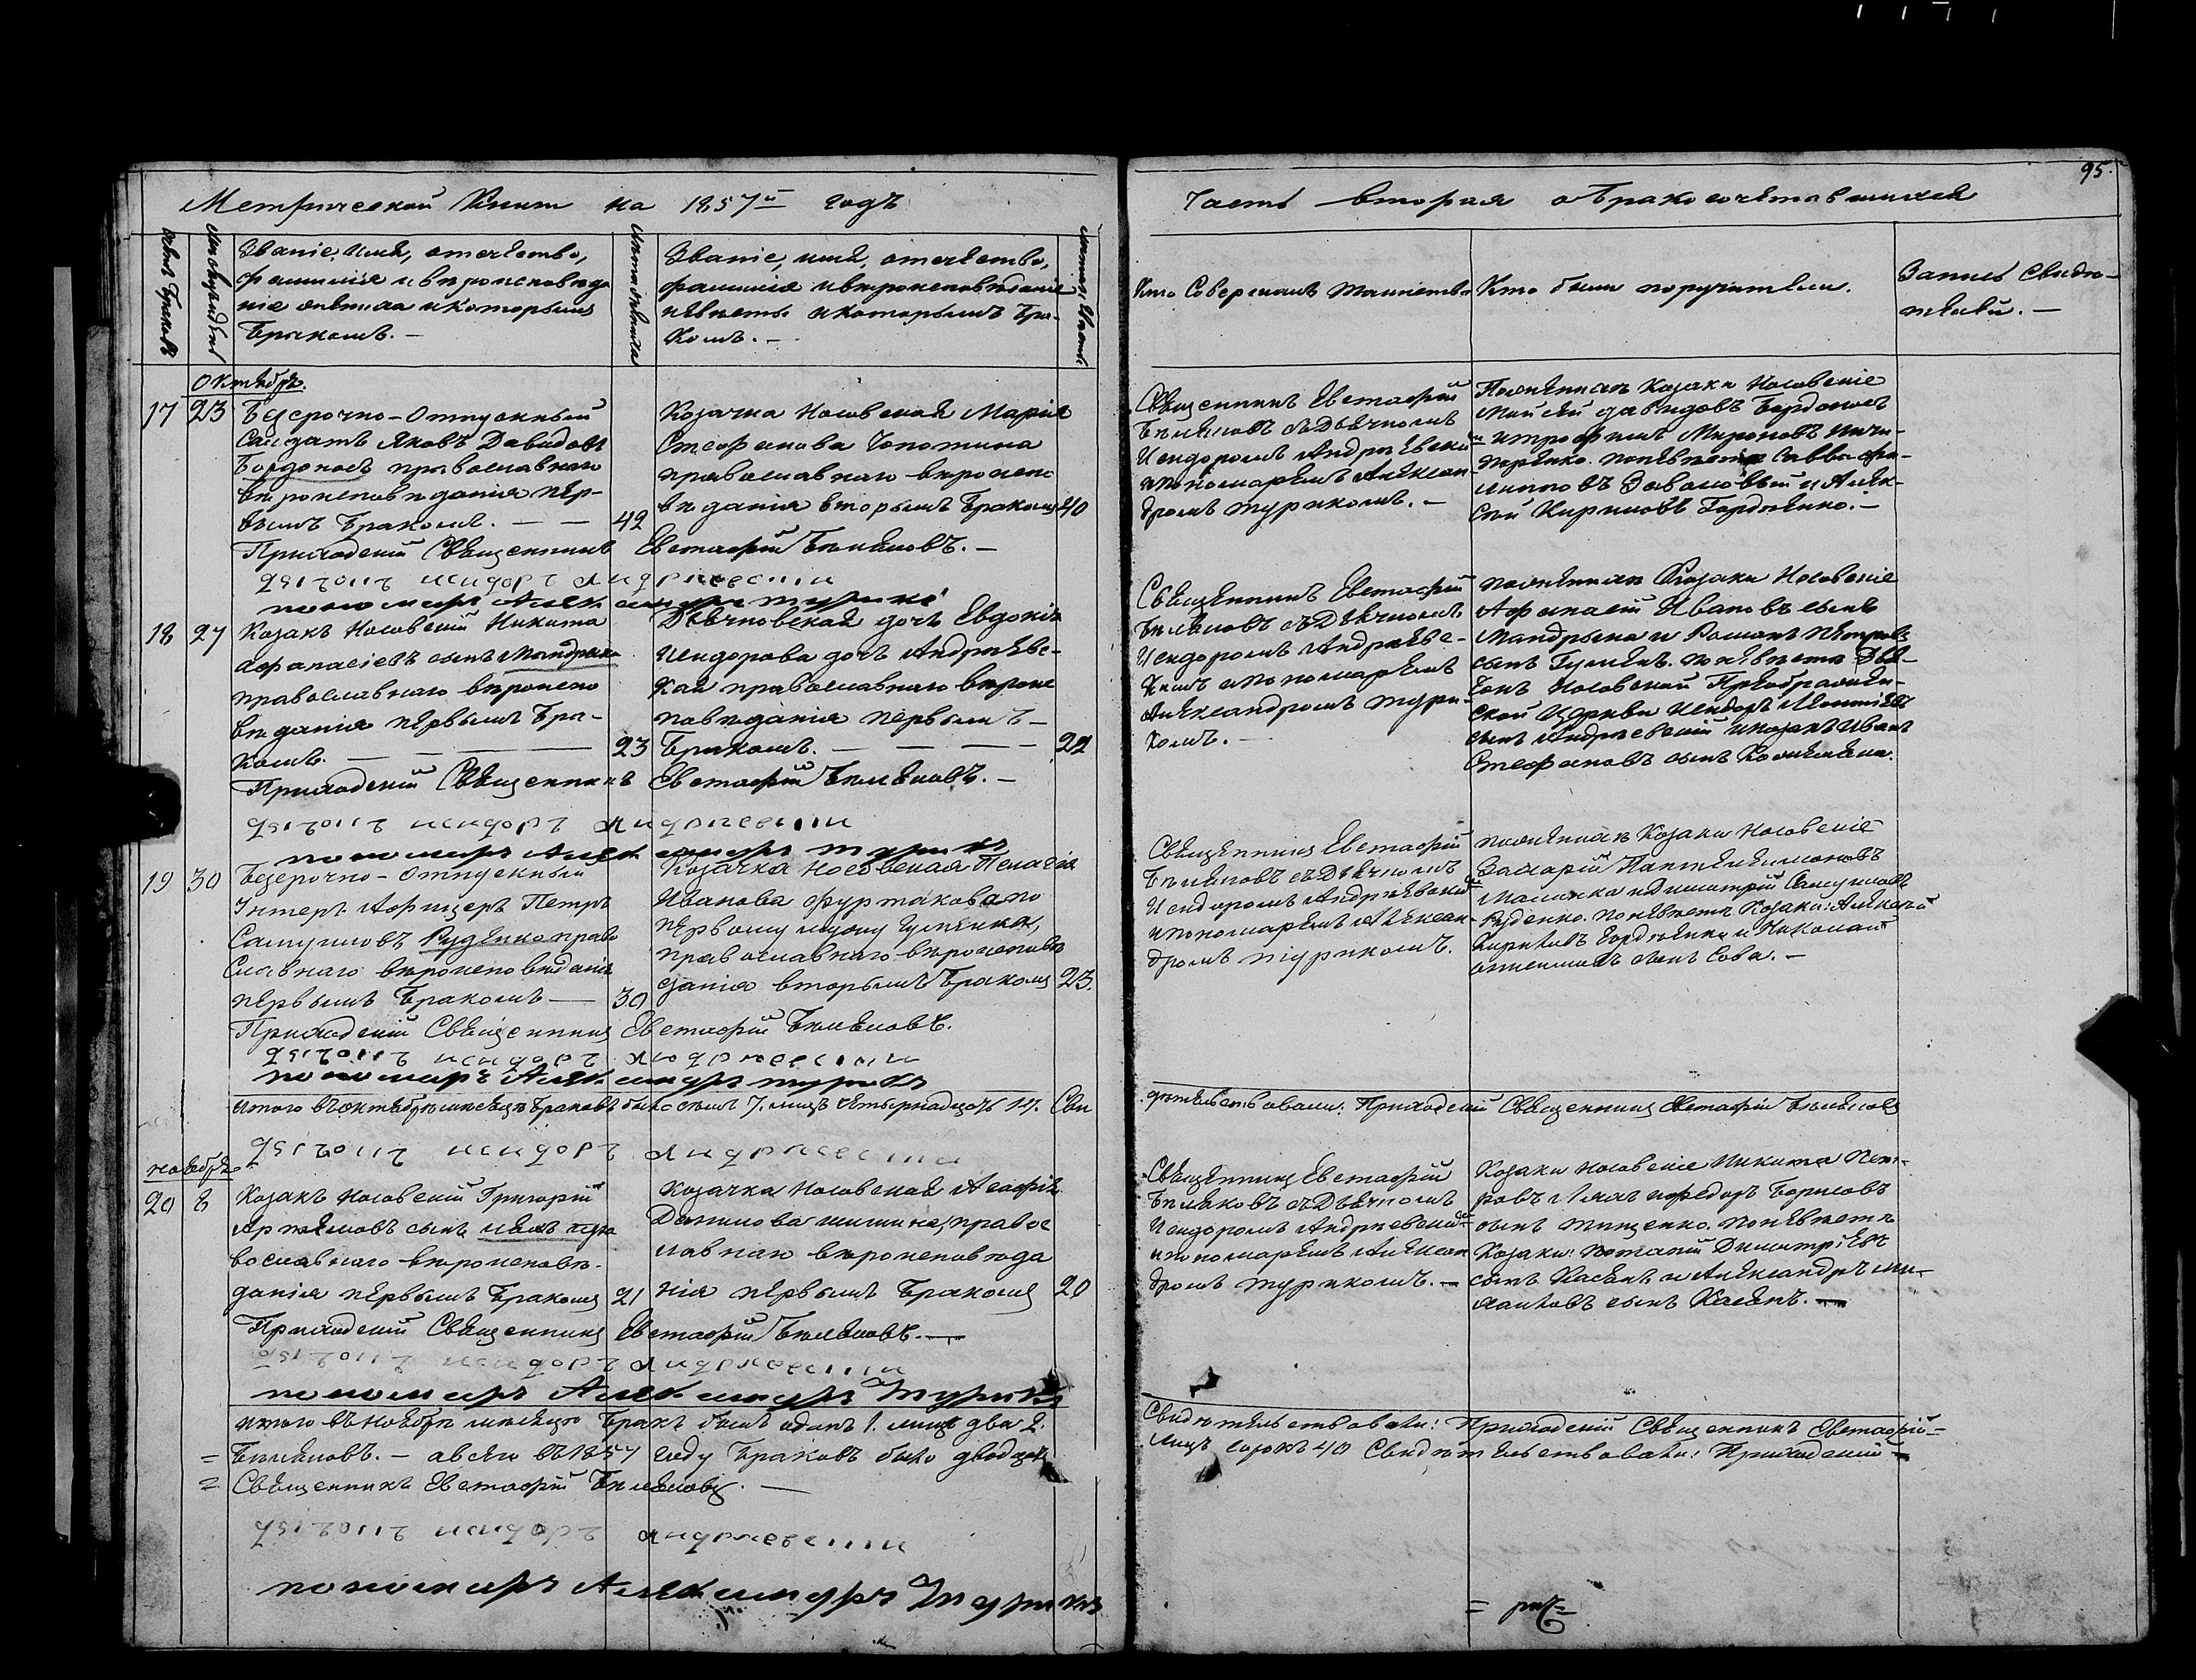 95.
Метрической Книги на 1857й годъ
Часть вторая о Бракосочетавшихся
Званіе, имя, отчество,
фамилія и вѣроисповѣда
ніе жениха и которымъ
Бракомъ. —
Лѣта жениха
Званіе, имя, отчество,
фамилія и вѣроисповѣданіе
невѣсты и которымъ Бра-
комъ. —
Лѣта невѣсты
Кто Совершалъ Таинство
Кто были поручители.
Запись Свидѣ-
телей. —
Октябрь.
17 23 Безсрочно-Отпускный
Салдатъ Яковъ Давидовъ
Бордоносъ православнаго
вѣроисповѣданія пер-
вымъ Бракомъ. — — 42
Козачка Носовская Марія
Стефанова
православнаго вѣроиспо
вѣданія вторымъ Бракомъ 40
Священникъ Евстафій
Бѣляковъ съ Дьячкомъ
Исидоромъ Андріевскимъ
и пономаремъ Алексан-
дромъ Турикомъ. —
По женихѣ Козаки Носовскіе
Моисей Давидовъ Бордоносъ
и Трофимъ Мироновъ Ничи-
поренко. по невѣстѣ Савва Фи-
липповъ и Алек-
сѣй Кириловъ Гордѣенко. —
Приходскій Священникъ Евстафій Бѣляковъ. —
Дьячокъ Исидоръ Андріевскій
пономарь Александръ Турикъ
18 27 Козакъ Носовскій Никита
Афанасіевъ сынъ Мандрыка
православнаго вѣроиспо
вѣданія первымъ Бра-
комъ. — 23
Дьячковская дочь Евдокія
Исидорова дочь Андріевс-
кая православнаго вѣроис
повѣданія первымъ —
Бракомъ. — — — 22
Священникъ Евстафій
Бѣляковъ съ Дьячкомъ
Исидоромъ Андріевс-
кимъ и пономаремъ
Александромъ Тури-
комъ. —
По женихѣ Козаки Носовскіе
Афанасій Ивановъ сынъ
Мандрыка и Романъ Петровъ
сынъ Гуменъ. по невѣстѣ Дья-
чокъ Носовской Преображен-
ской Церкви Исидоръ
сынъ Андріевскій и козакъ Иванъ
Стефановъ сынъ
Приходскій Священникъ Евстафій Бѣляковъ. —
Дьячокъ Исидоръ Андріевскій
пономарь Александръ Турикъ
19 30 Безсрочно-Отпускный
Унтеръ Афицеръ Петръ
Самуиловъ Руденко право
славнаго вѣроисповѣданія
первымъ Бракомъ — 30
Козачка Носовская Пелагія
Иванова Фуртакова по
первому мужу Гуменка,
православнаго вѣроисповѣ
данія вторымъ Бракомъ 23.
Священникъ Евстафій
Бѣляковъ съ Дьячкомъ
Исидоромъ Андріевскимъ
и пономаремъ Алексан-
дромъ Турикомъ.
По женихѣ Козаки Носовскіе
Захарій Пантелеимоновъ
и Димитрій Самуиловъ
Руденко. по невѣстѣ Козаки: Алексѣй
Кириловъ Гордѣенко и Николай
сынъ Сова. —
Приходскій Священникъ Евстафій Бѣляковъ.
Дьячокъ Исидоръ Андріевскій
пономарь Александръ Турикъ
Итого въ октябрѣ мѣсяцѣ Браковъ было семъ 7. лицъ четырнадцать 14. Сви
дѣтельствовали: Приходскій Священникъ Евстафій Бѣляковъ
Дьячокъ Исидоръ Андріевскій
Ноябрь.
20 8 Козакъ Носовскій Григорій
Артемовъ сынъ пра
вославнаго вѣроисповѣ-
данія первымъ Бракомъ 21
Козачка Носовская Агафія
Данилова православ
лавнаго вѣроисповѣда
нія первымъ Бракомъ 20
Священникъ Евстафій
Бѣляковъ съ Дьячкомъ
Исидоромъ Андріевскимъ
и пономаремъ Алексан
дромъ Турикомъ. —
Козаки Носовскіе Никита Пет-
ровъ Ляхъ и Федоръ Борисовъ
сынъ Тищенко. по невѣстѣ
Козаки: Потапій Димитріевъ
сынъ Касянъ и Александръ Ми-
хаиловъ сынъ Касянъ. —
Приходскій Священникъ Евстафій Бѣляковъ. —
Дьячокъ Исидоръ Андріевскій
пономарь Александръ Турикъ
Итого въ Ноябрѣ мѣсяцѣ Бракъ былъ одинъ 1. лицъ два 2.
Свидѣтельствовали: Приходскій Священникъ Евстафій =
= Бѣляковъ. — а всего въ 1857 году Браковъ было двадцать
лицъ сорокъ 40 Свидѣтельствовали: Приходскій =
= Священникъ Евстафій Бѣляковъ. —
Дьячокъ Исидоръ Андріевскій
пономарь Александръ Турикъ